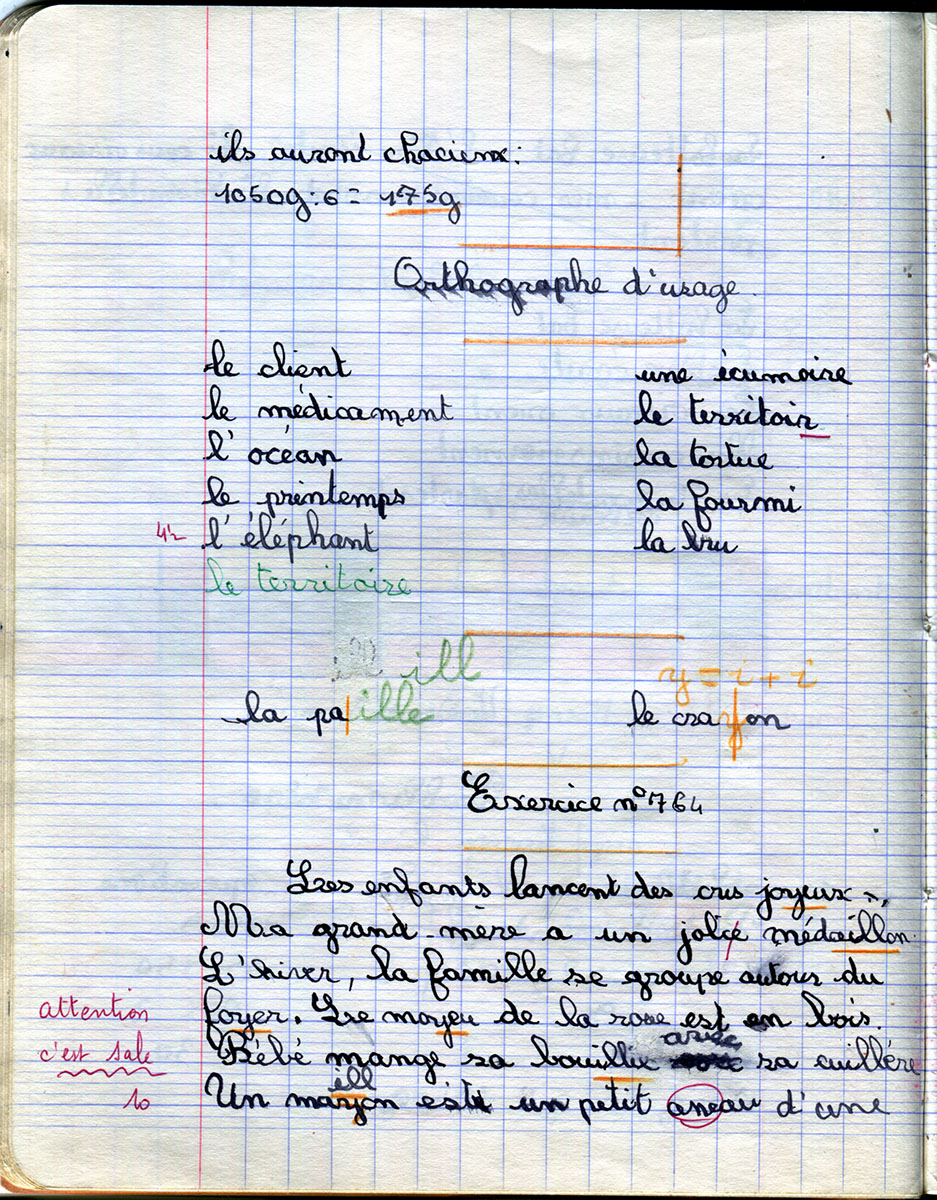 ils auront chacun:
1050g:6 = 175g
Orthographe d'usage.
le client
le médicament
l'océan
le printemps
4½ l'éléphant
le territoire
une écumoire
le territoir
la tortue
la fourmi
la bru
ill
la paille
y = i + i
le crayon
Exercice n° 764
Les enfants lancent des cris joyeux.
Ma grand-mère a un jolie médaillon.
L'hiver, la famille se groupe autour du
attention foyer. Le moyeu de la roue est en bois.
avec
c'est sale Bébé mange sa bouillie sa cuillère
ill
10 Un mayon est un petit aneau d'une